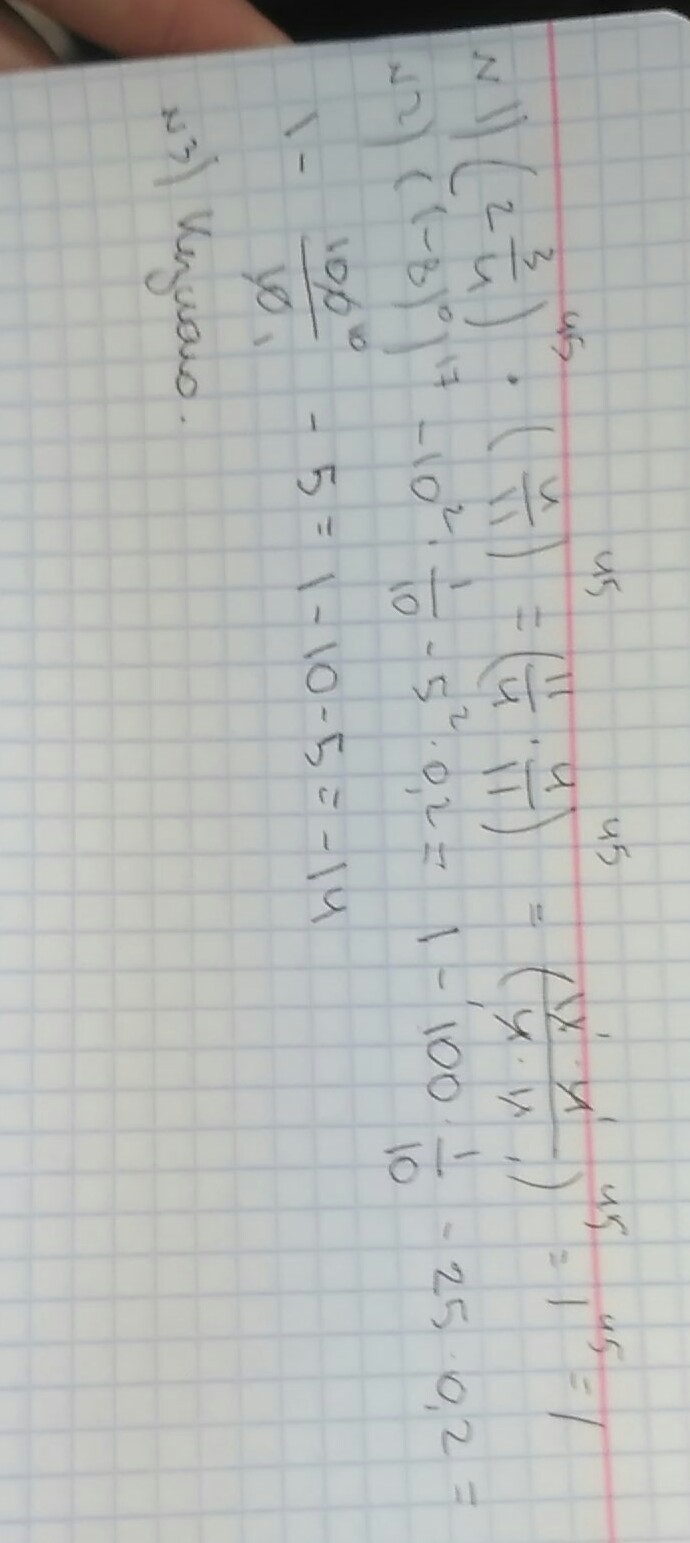 N1) (2 3/4)^45 · (4/11)^45 = (11/4 · 4/11)^45 = (11 · 4 / 4 · 11)^45 = 1^45 = 1
N2) ((-8)^0)^17 - 10^2 · 1/10 - 5^2 · 0,2 = 1 - 100 · 1/10 - 25 · 0,2 =
1 - 100/10 - 5 = 1 - 10 - 5 = -14
N3)